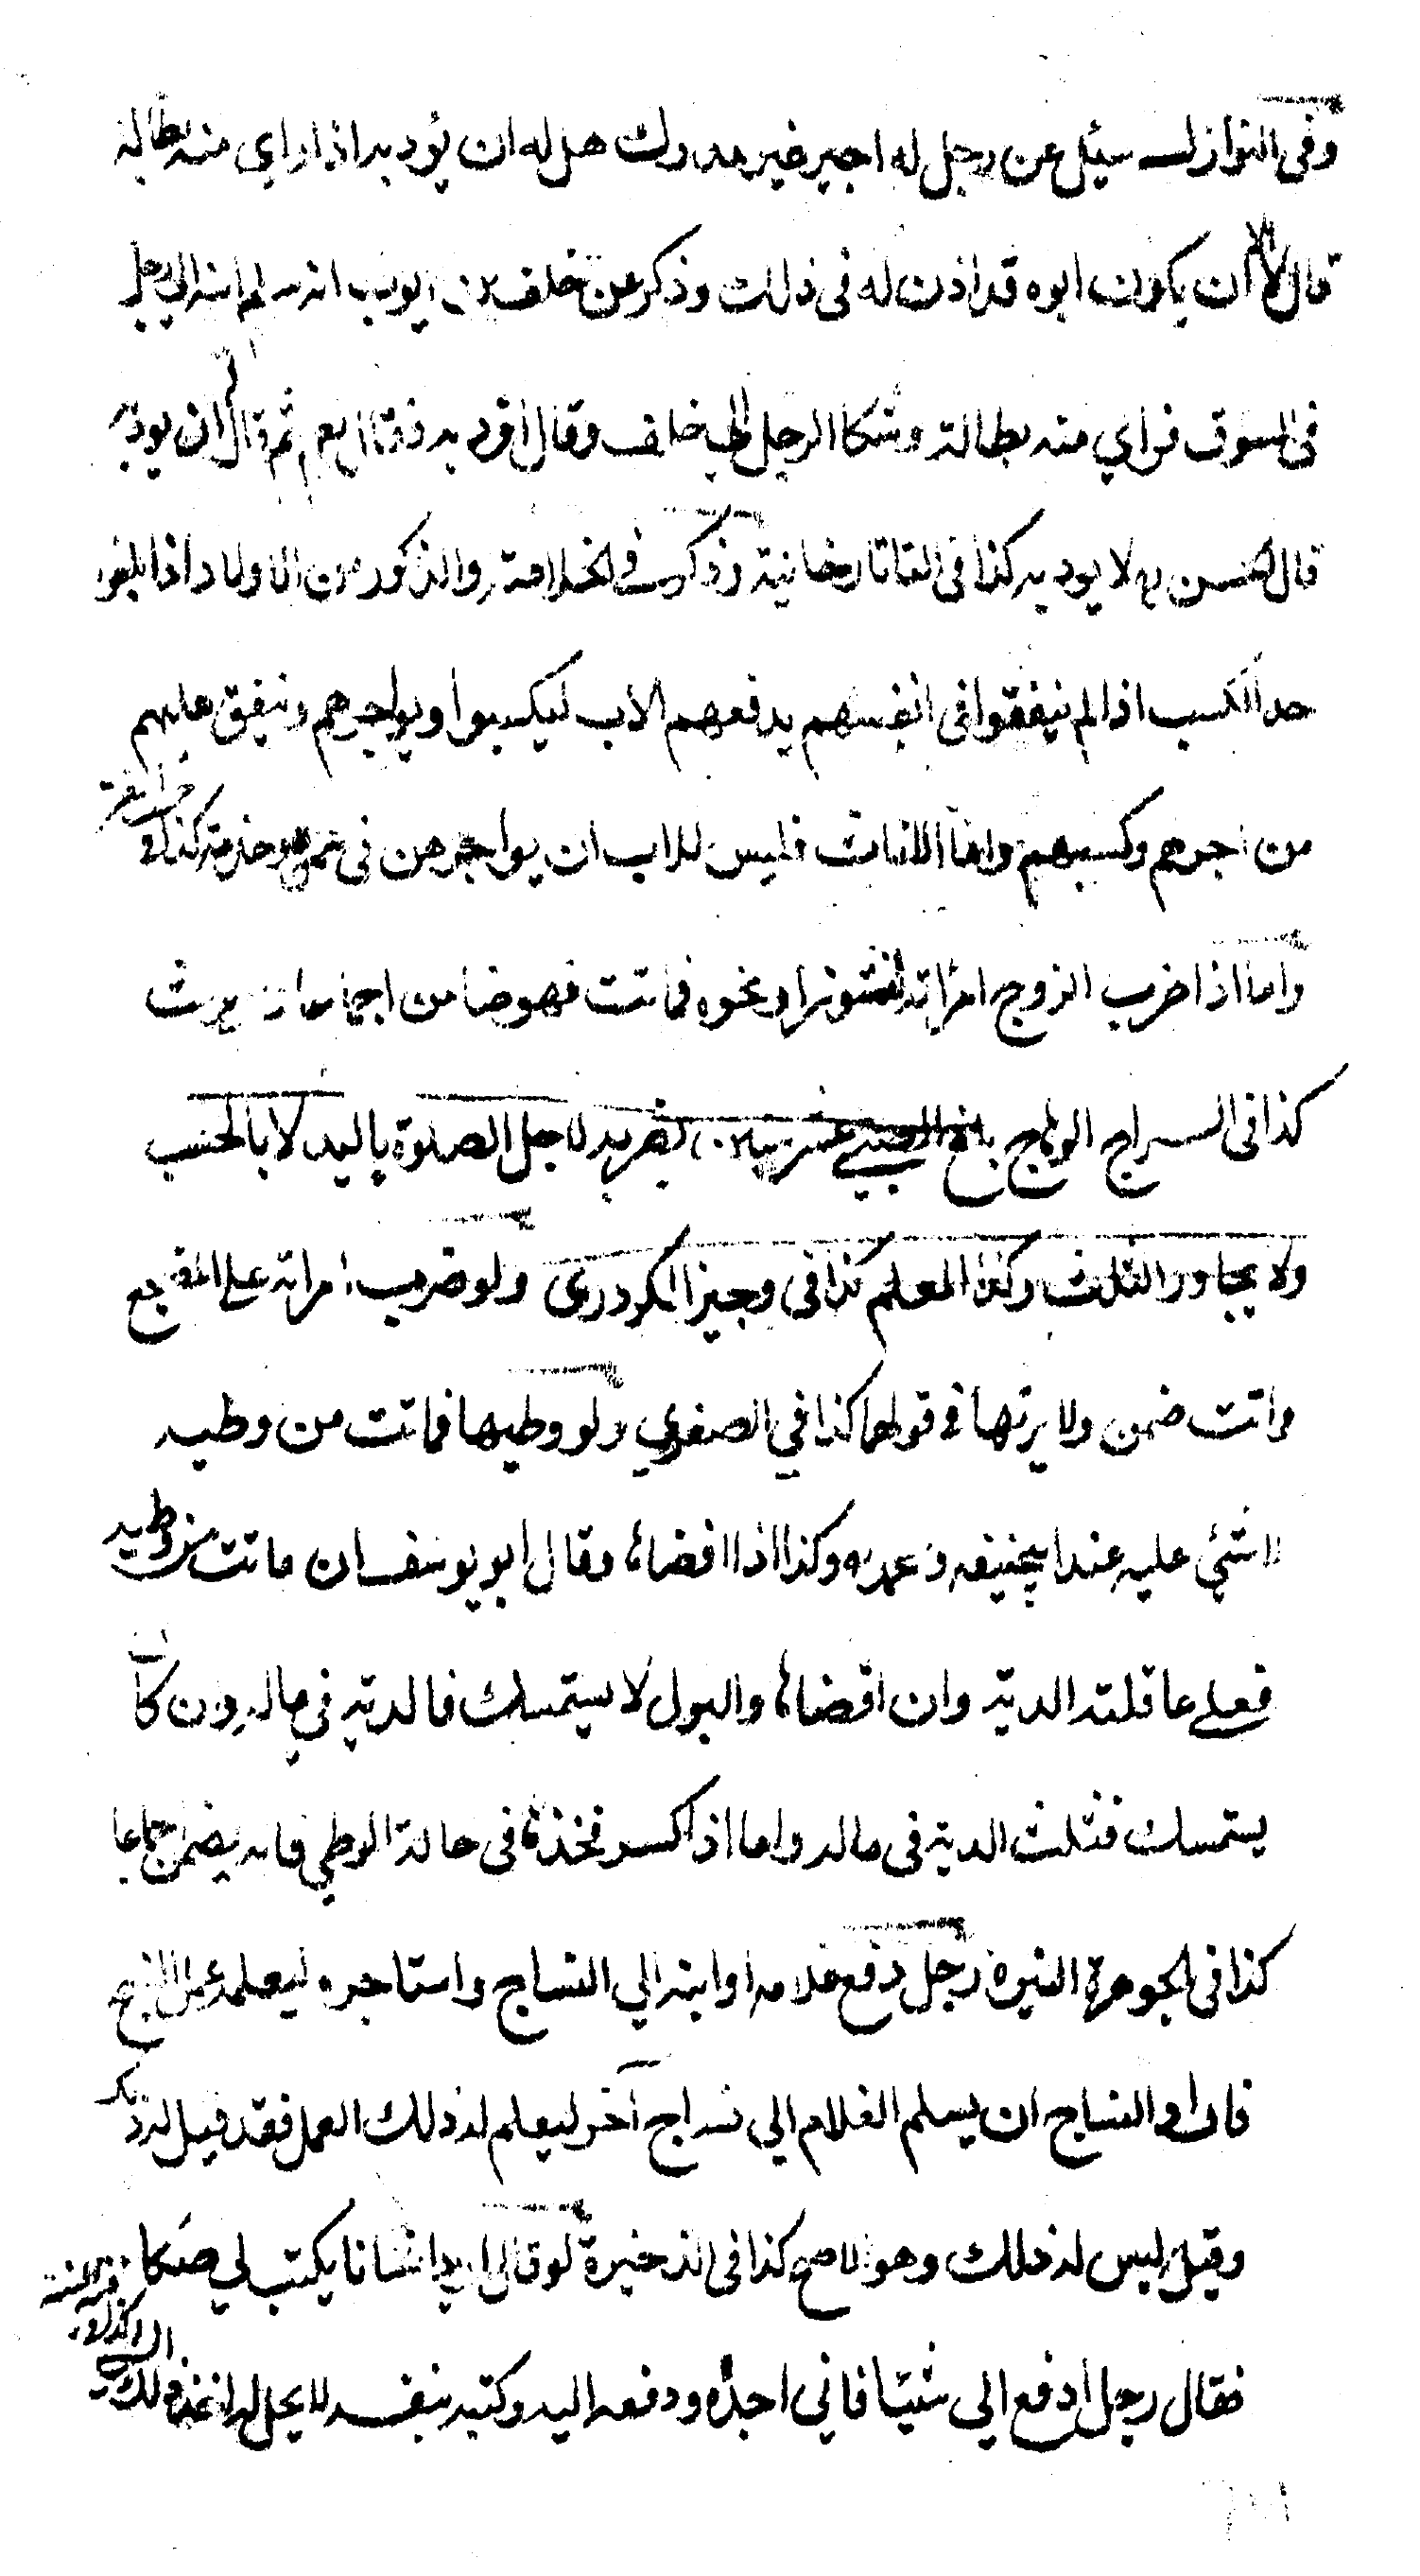 وفى النوازل سئيل عن رجل له اجير غير مدرك هل له ان يؤدبه اذا راي منه بطالة
قال لا الا ان يكون ابوه قد اذن له فى ذلك وذكر عن خلف بن ايوب انه سلم ابنه الى رجل
فى السوق فراي منه بطالة وشكا الرجل الى خلف وقال اؤدبه فقال نعم ثم قال له ان يودبه
قال الحسن لا يودبه كذا فى التاتارخانية وذكر فى الخلاصة والذكور من الاولاد اذا بلغوا
حد الكسب اذا لم ينفقوا فى انفسهم يدفعهم الاب ليكسبوا او يواجرهم وينفق عليهم
من اجرهم وكسبهم واما الاناث فليس للاب ان يواجرهن فى عمل وخدمة كذا فى
واما اذا ضرب الزوج امراته لنشوز او نحوه فماتت فهو ضامن اجماعا ولا يرث
كذا فى السراج الوهاج بلغ الصبي عشر سنين يضربه لاجل الصلوة باليد لا بالخشب
ولا يجاوز الثلث وكذا المعلم كذا فى وجيز الكردرى ولو ضرب امراته على المضجع
فماتت ضمن ولا يرثها فى قولهما كذا في الصغري ولو وطيها فماتت من وطيه
لا شئي عليه عند ابيحنيفه ومحمد وكذا اذا افضاها وقال ابو يوسف ان ماتت من وطيه
فعلي عاقلته الدية وان افضاها والبول لا يستمسك فالدية في ماله وان كان
يستمسك فثلث الدية فى ماله واما اذا كسر فخذها فى حالة الوطي فانه يضمن اجماعا
كذا فى الجوهرة النيرة رجل دفع غلامه او ابنه الي النساج واستاجره ليعلمه عمل النسج
فاراد النساج ان يسلم الغلام الي نساج آخر ليعلم له ذلك العمل فقد قيل له ذلك
وقيل ليس له ذلك وهو الاصح كذا فى الذخيرة لو قال اريد انسانا يكتب لي صكا
فقال رجل ادفع الي شيئا فاني اجده ودفعه اليه وكتبه بنفسه لا يحل له اخذ ذلك